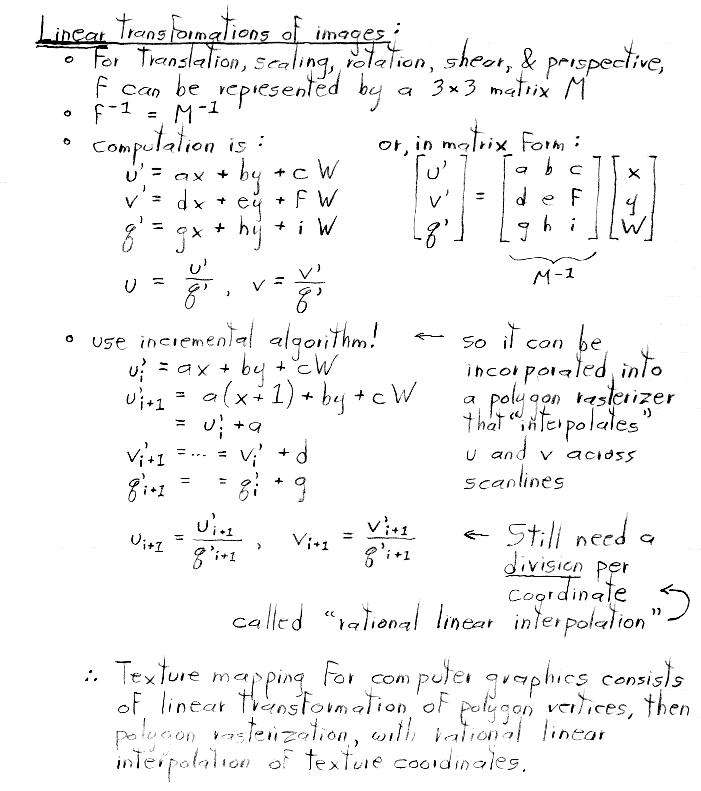 Linear Transformations of images:
• For Translation, scaling, rotation, shear, & perspective,
F can be represented by a 3×3 matrix M
• F⁻¹ = M⁻¹
• computation is:
u' = ax + by + cW
v' = dx + ey + fW
q' = gx + hy + iW
u = u'/q', v = v'/q'
or, in matrix Form:
[u'] = [a b c] [x]
[v'] = [d e F] [y]
[q'] = [g h i] [W]
M⁻¹
• use incremental algorithm!
u'ᵢ = ax + by + cW
u'ᵢ₊₁ = a(x+1) + by + cW
= u'ᵢ + a
v'ᵢ₊₁ = ... = vᵢ' + d
q'ᵢ₊₁ = = q'ᵢ + g
← so it can be
incorporated into
a polygon rasterizer
that "interpolates"
u and v across
scanlines
uᵢ₊₁ = u'ᵢ₊₁/q'ᵢ₊₁, vᵢ₊₁ = v'ᵢ₊₁/q'ᵢ₊₁
← Still need a
division per
coordinate
called "rational linear interpolation"
∴ Texture mapping For computer graphics consists
of linear transformation of polygon vertices, then
polygon rasterization, with rational linear
interpolation of texture coordinates.